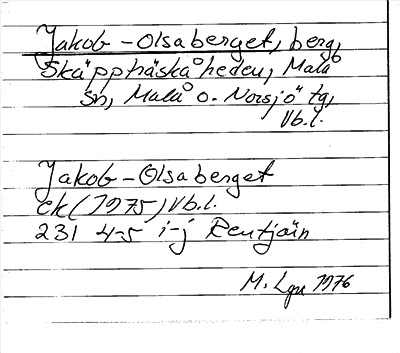 Jakob-Olsaberget, berg,
Skäppträskåheden, Malå
sn, Malå o. Norsjö tg,
Vb.l.
Jakob-Olsaberget
ek (1975) Vb.l.
231 4-5 i-j Rentjärn
M. Lgn 1976